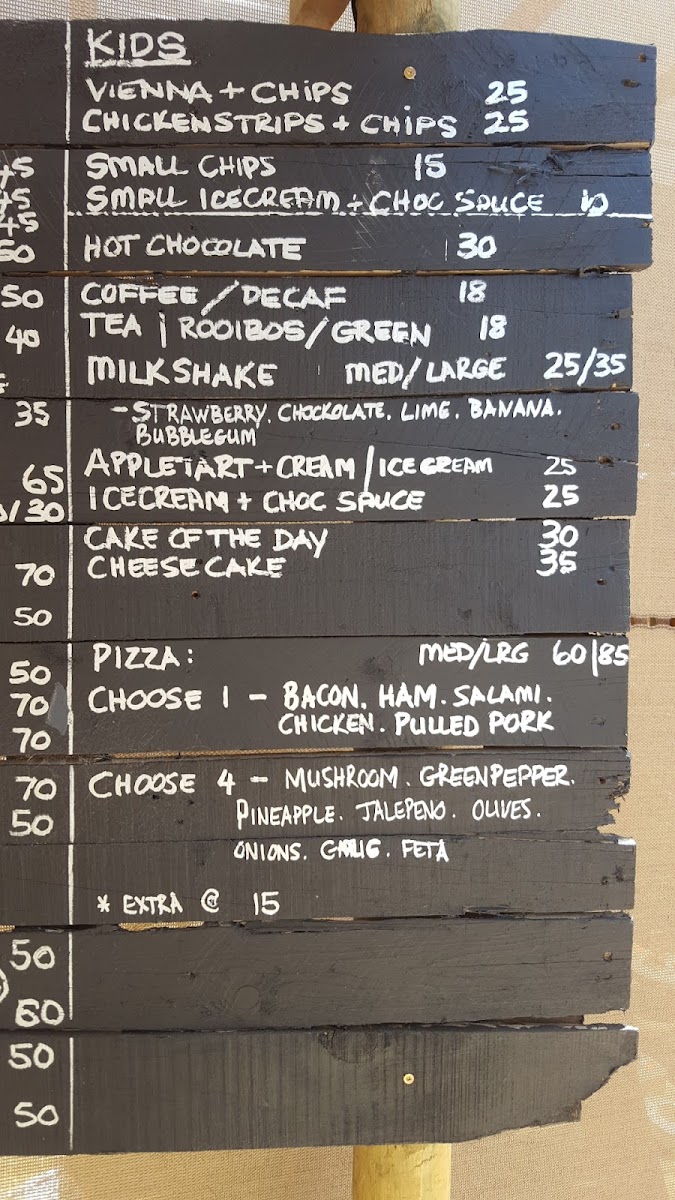 KIDS
VIENNA + CHIPS 25
CHICKENSTRIPS + CHIPS 25
SMALL CHIPS 15
SMALL ICECREAM + CHOC SAUCE 10
HOT CHOCOLATE 30
COFFEE / DECAF 18
TEA | ROOIBOS / GREEN 18
MILKSHAKE MED/LARGE 25/35
- STRAWBERRY. CHOCKOLATE. LIME. BANANA.
BUBBLEGUM
APPLETART + CREAM / ICECREAM 25
ICECREAM + CHOC SAUCE 25
CAKE OF THE DAY 30
CHEESECAKE 35
PIZZA: MED/LRG 60|85
CHOOSE 1 - BACON. HAM. SALAMI.
CHICKEN. PULLED PORK
CHOOSE 4 - MUSHROOM. GREENPEPPER.
PINEAPPLE. JALEPENO. OLIVES.
ONIONS. GARLIC. FETA
* EXTRA @ 15
45
45
45
60
50
40
35
65
/30
70
50
50
70
70
70
50
50
60
50
50